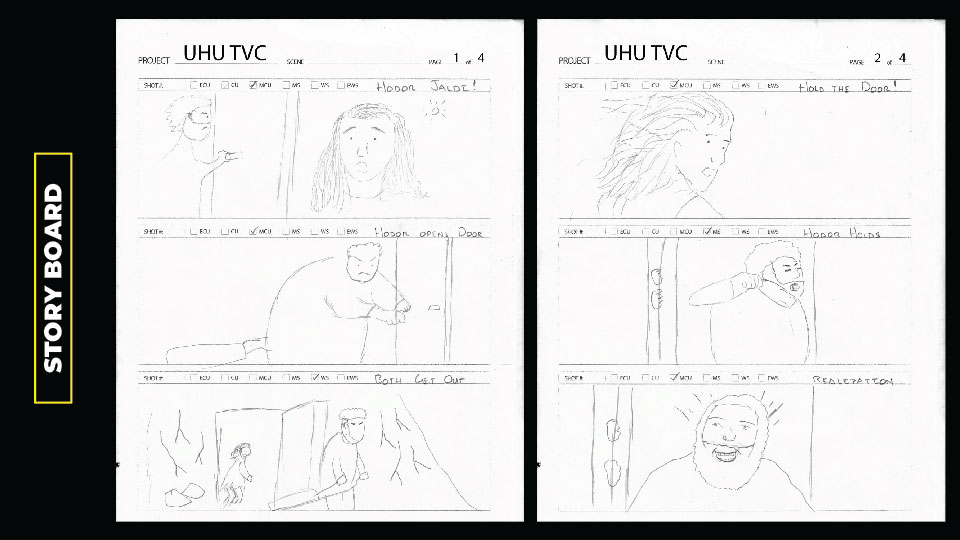 STORY BOARD
PROJECT UHU TVC SCENE PAGE 1 of 4
SHOT#: ECU CU MCU MS WS EWS HODOR JALDI!
SHOT#: ECU CU MCU MS WS EWS HODOR OPENS DOOR
SHOT#: ECU CU MCU MS WS EWS BOTH GET OUT
PROJECT UHU TVC SCENE PAGE 2 of 4
SHOT#: ECU CU MCU MS WS EWS HOLD THE DOOR!
SHOT#: ECU CU MCU MS WS EWS HODOR HOLDS
SHOT#: ECU CU MCU MS WS EWS REALIZATION